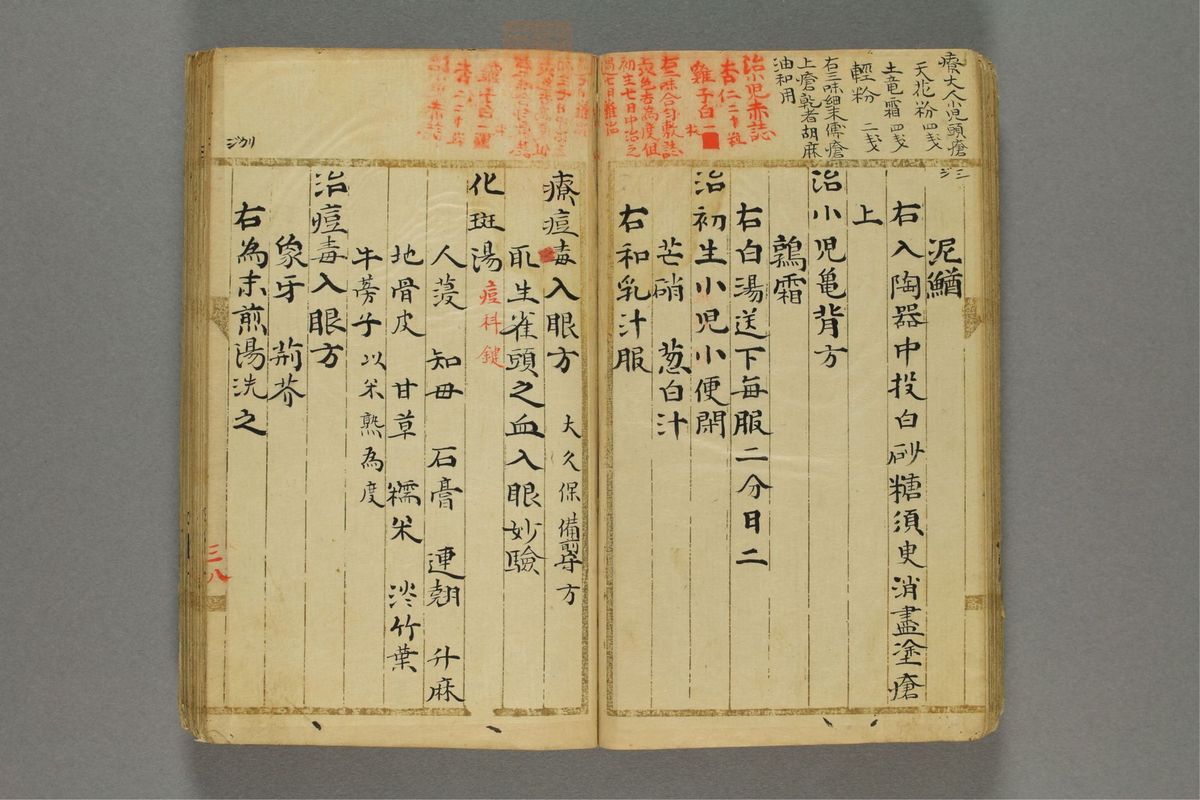 療大人小児頭瘡
天花粉四戔
土竜霜四戔
輕粉 二戔
右三味細末傅瘡
上瘡乾者胡麻
油和用
治小児赤誌
杏仁二十粒
雞子白一枚
右二味合匀敷誌
初生七日中治之
泥鰌
右入陶器中投白砂糖須臾消盡塗瘡
上
治小児亀背方
鶉霜
右白湯送下毎服二分日二
治初生小児小便閉
芒硝 葱白汁
右和乳汁服
療痘毒入眼方 大久保備前守方
取生雀頭之血入眼妙驗
化斑湯 痘科鍵
人薓 知母 石膏 連翹 升麻
地骨皮 甘草 糯米 淡竹葉
牛蒡子 以米熟為度
治痘毒入眼方
象牙 荊芥
右為末煎湯洗之
三八